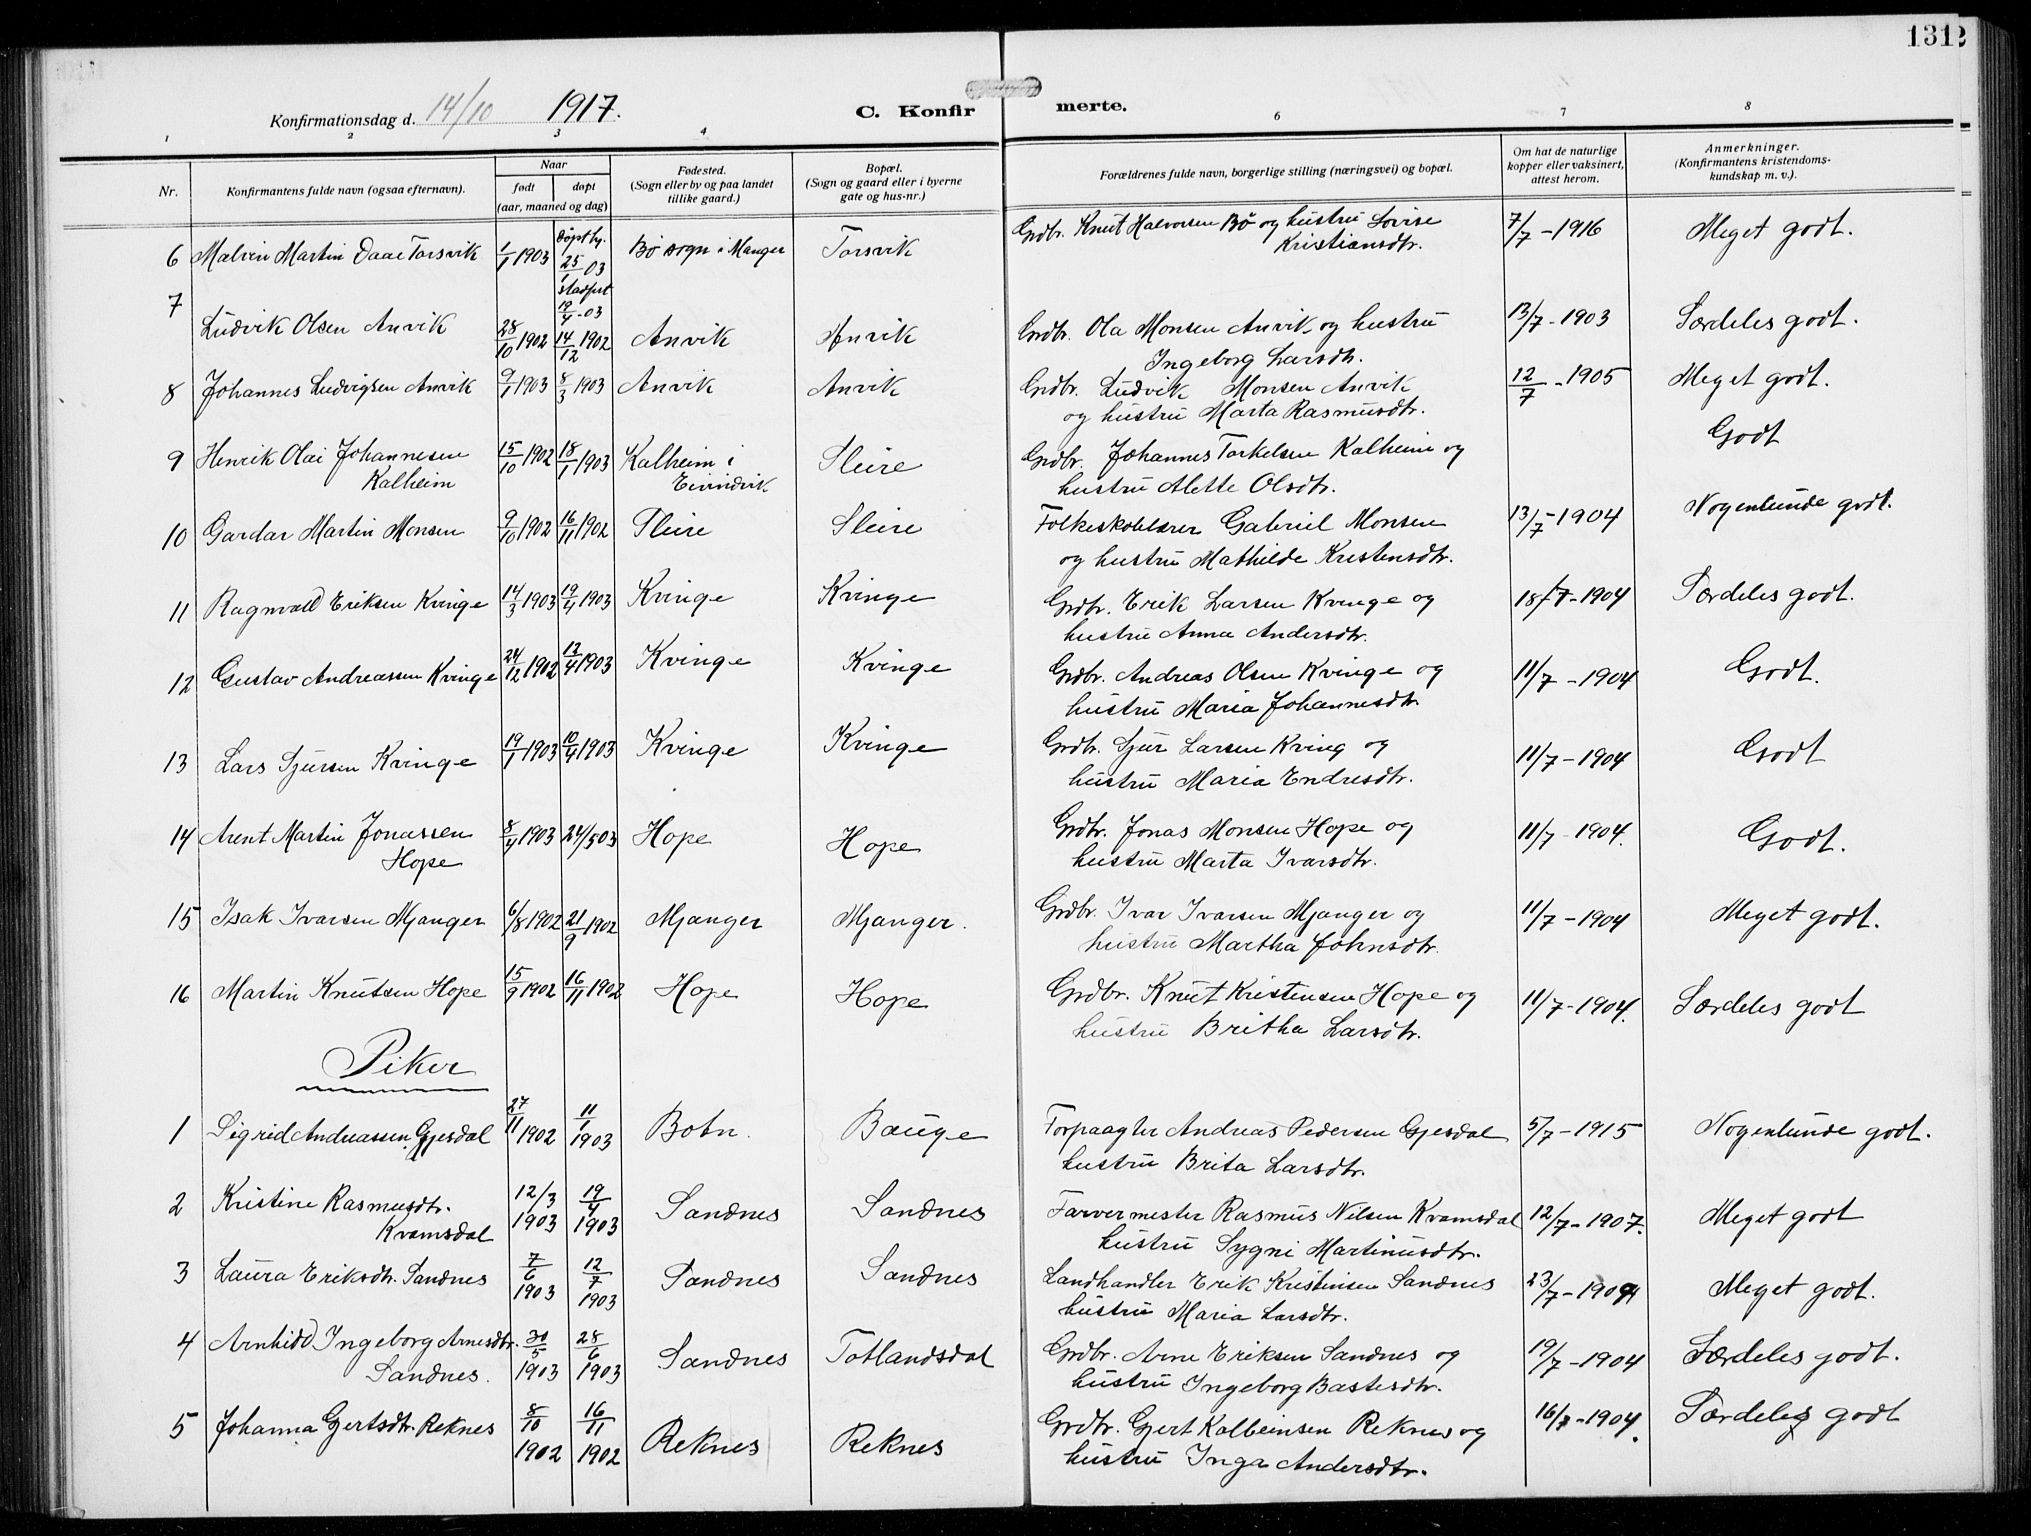 1312
Konfirmationsdag d. 14/10 1917. C. Konfirmerte.
1 2 3 4 6 7 8
Nr. Konfirmantens fulde navn (ogsaa efternavn). Naar født døpt (aar, maaned og dag) Fødested. (Sogn eller by og paa landet tillike gaard.) Bopæl. (Sogn og gaard eller i byerne gate og hus-nr.) Forældrenes fulde navn, borgerlige stilling (næringsvei) og bopæl. Om hat de naturlige kopper eller vaksinert, attest herom. Anmerkninger. (Konfirmantens kristendomskundskap m. v.).
6 Malvin Martin Daae Torsvik 1/1 1903 Døpt hj. 25/1 03 stadfest 19/4-03 Bø sogn i Manger Torsvik Grdbr. Knut Halvorsen Bø og hustru Lovise Kristiansdtr. 7/7-1916 Meget godt.
7 Ludvik Olsen Anvik 28/10 1902 14/12 1902 Anvik Anvik Grdbr. Ola Monsen Anvik og hustru Ingeborg Larsdtr. 13/7-1903 Særdeles godt.
8 Johannes Ludvigsen Anvik 9/1 1903 8/3 1903 Anvik Anvik Grdbr. Ludvik Monsen Anvik og hustru Marta Rasmusdtr. 12/7-1905 Meget godt.
9 Henrik Olai Johannesen Kalheim 15/10 1902 18/1 1903 Kalheim i Eivindvik Sleire Grdbr. Johannes Torkelsen Kalheim og hustru Alette Olsdtr. Godt
10 Gardar Martin Monsen 9/10 1902 16/11 1902 Sleire Sleire Folkeskolelærer Gabriel Monsen og hustru Mathilde Kristensdtr. 13/7-1904 Nogenlunde godt.
11 Ragnvald Eriksen Kvinge 14/3 1903 19/4 1903 Kvinge Kvinge Grdbr. Erik Larsen Kvinge og hustru Anna Andersdtr. 18/7-1904 Særdeles godt.
12 Gustav Andreassen Kvinge 24/12 1902 12/4 1903 Kvinge Kvinge Grdbr. Andreas Olsen Kvinge og hustru Maria Johannesdtr 11/7-1904 Godt.
13 Lars Sjursen Kvinge 19/1 1903 10/4 1903 Kvinge Kvinge Grdbr. Sjur Larsen Kving og hustru Maria Endresdtr. 11/7-1904 Godt
14 Arent Martin Jonassen Hope 8/4 1903 24/5 03 Hope Hope Grdbr. Jonas Monsen Hope og hustru Marta Ivarsdtr. 11/7-1904. Godt.
15 Isak Ivarsen Mjanger 6/8 1902 21/9 1902 Mjanger Mjanger. Grdbr. Ivar Ivarsen Mjanger og hustru Martha Johnsdtr. 11/7-1904 Meget godt.
16 Martin Knutsen Hope 15/9 1902 16/11 1902 Hope Hope Grdbr. Knut Kristensen Hope og hustru Britha Larsdtr. 11/7-1904. Særdeles godt
Piker
1 Sigrid Andreassen Gjesdal 27/11 1902 11/1 1903 Botn. Bauge Forpagter Andreas Pedersen Gjesdal hustru Brita Larsdtr. 5/7-1915 Nogenlunde godt.
2 Kristine Rasmusdtr. Kvamsdal 12/3 1903 19/4 1903 Sandnes Sandnes Farvermester Rasmus Nilsen Kvamsdal hustru Sygni Martinusdtr. 12/7-1907. Meget godt
3 Laura Eriksdtr. Sandnes 7/6 1903 12/7 1903 Sandnes Sandnes Landhandler Erik Kristensen Sandnes hustru Maria Larsdtr. 23/7-1904 Meget godt.
4 Arnhild Ingeborg Arnesdtr. Sandnes. 30/5 1903 28/6 1903 Sandnes Totlandsdal Grdbr. Arne Eriksen Sandnes og hustru Ingeborg Bastesdtr. 19/7-1904 Særdeles godt.
5 Johanna Gjertsdtr. Reknes 8/10 1902 16/11 1902 Reknes Reknes Grdbr. Gjert Kolbeinsen Reknes og hustru Inga Andersdtr. 16/7-1904. Særdeles godt